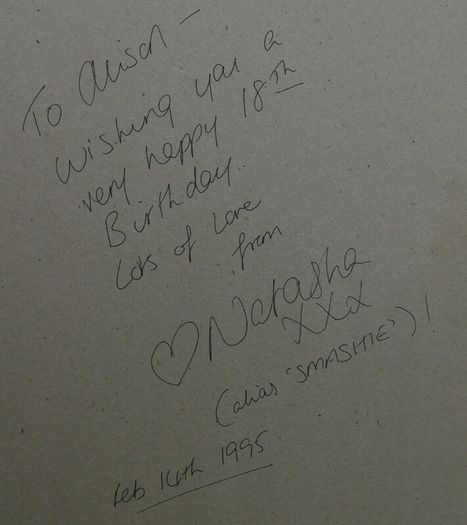 To Alison -
Wishing you a
very happy 18th
Birthday.
Lots of love
from
♡ Natasha
xxx
(alias 'SMASHIE')!
Feb 14th 1995